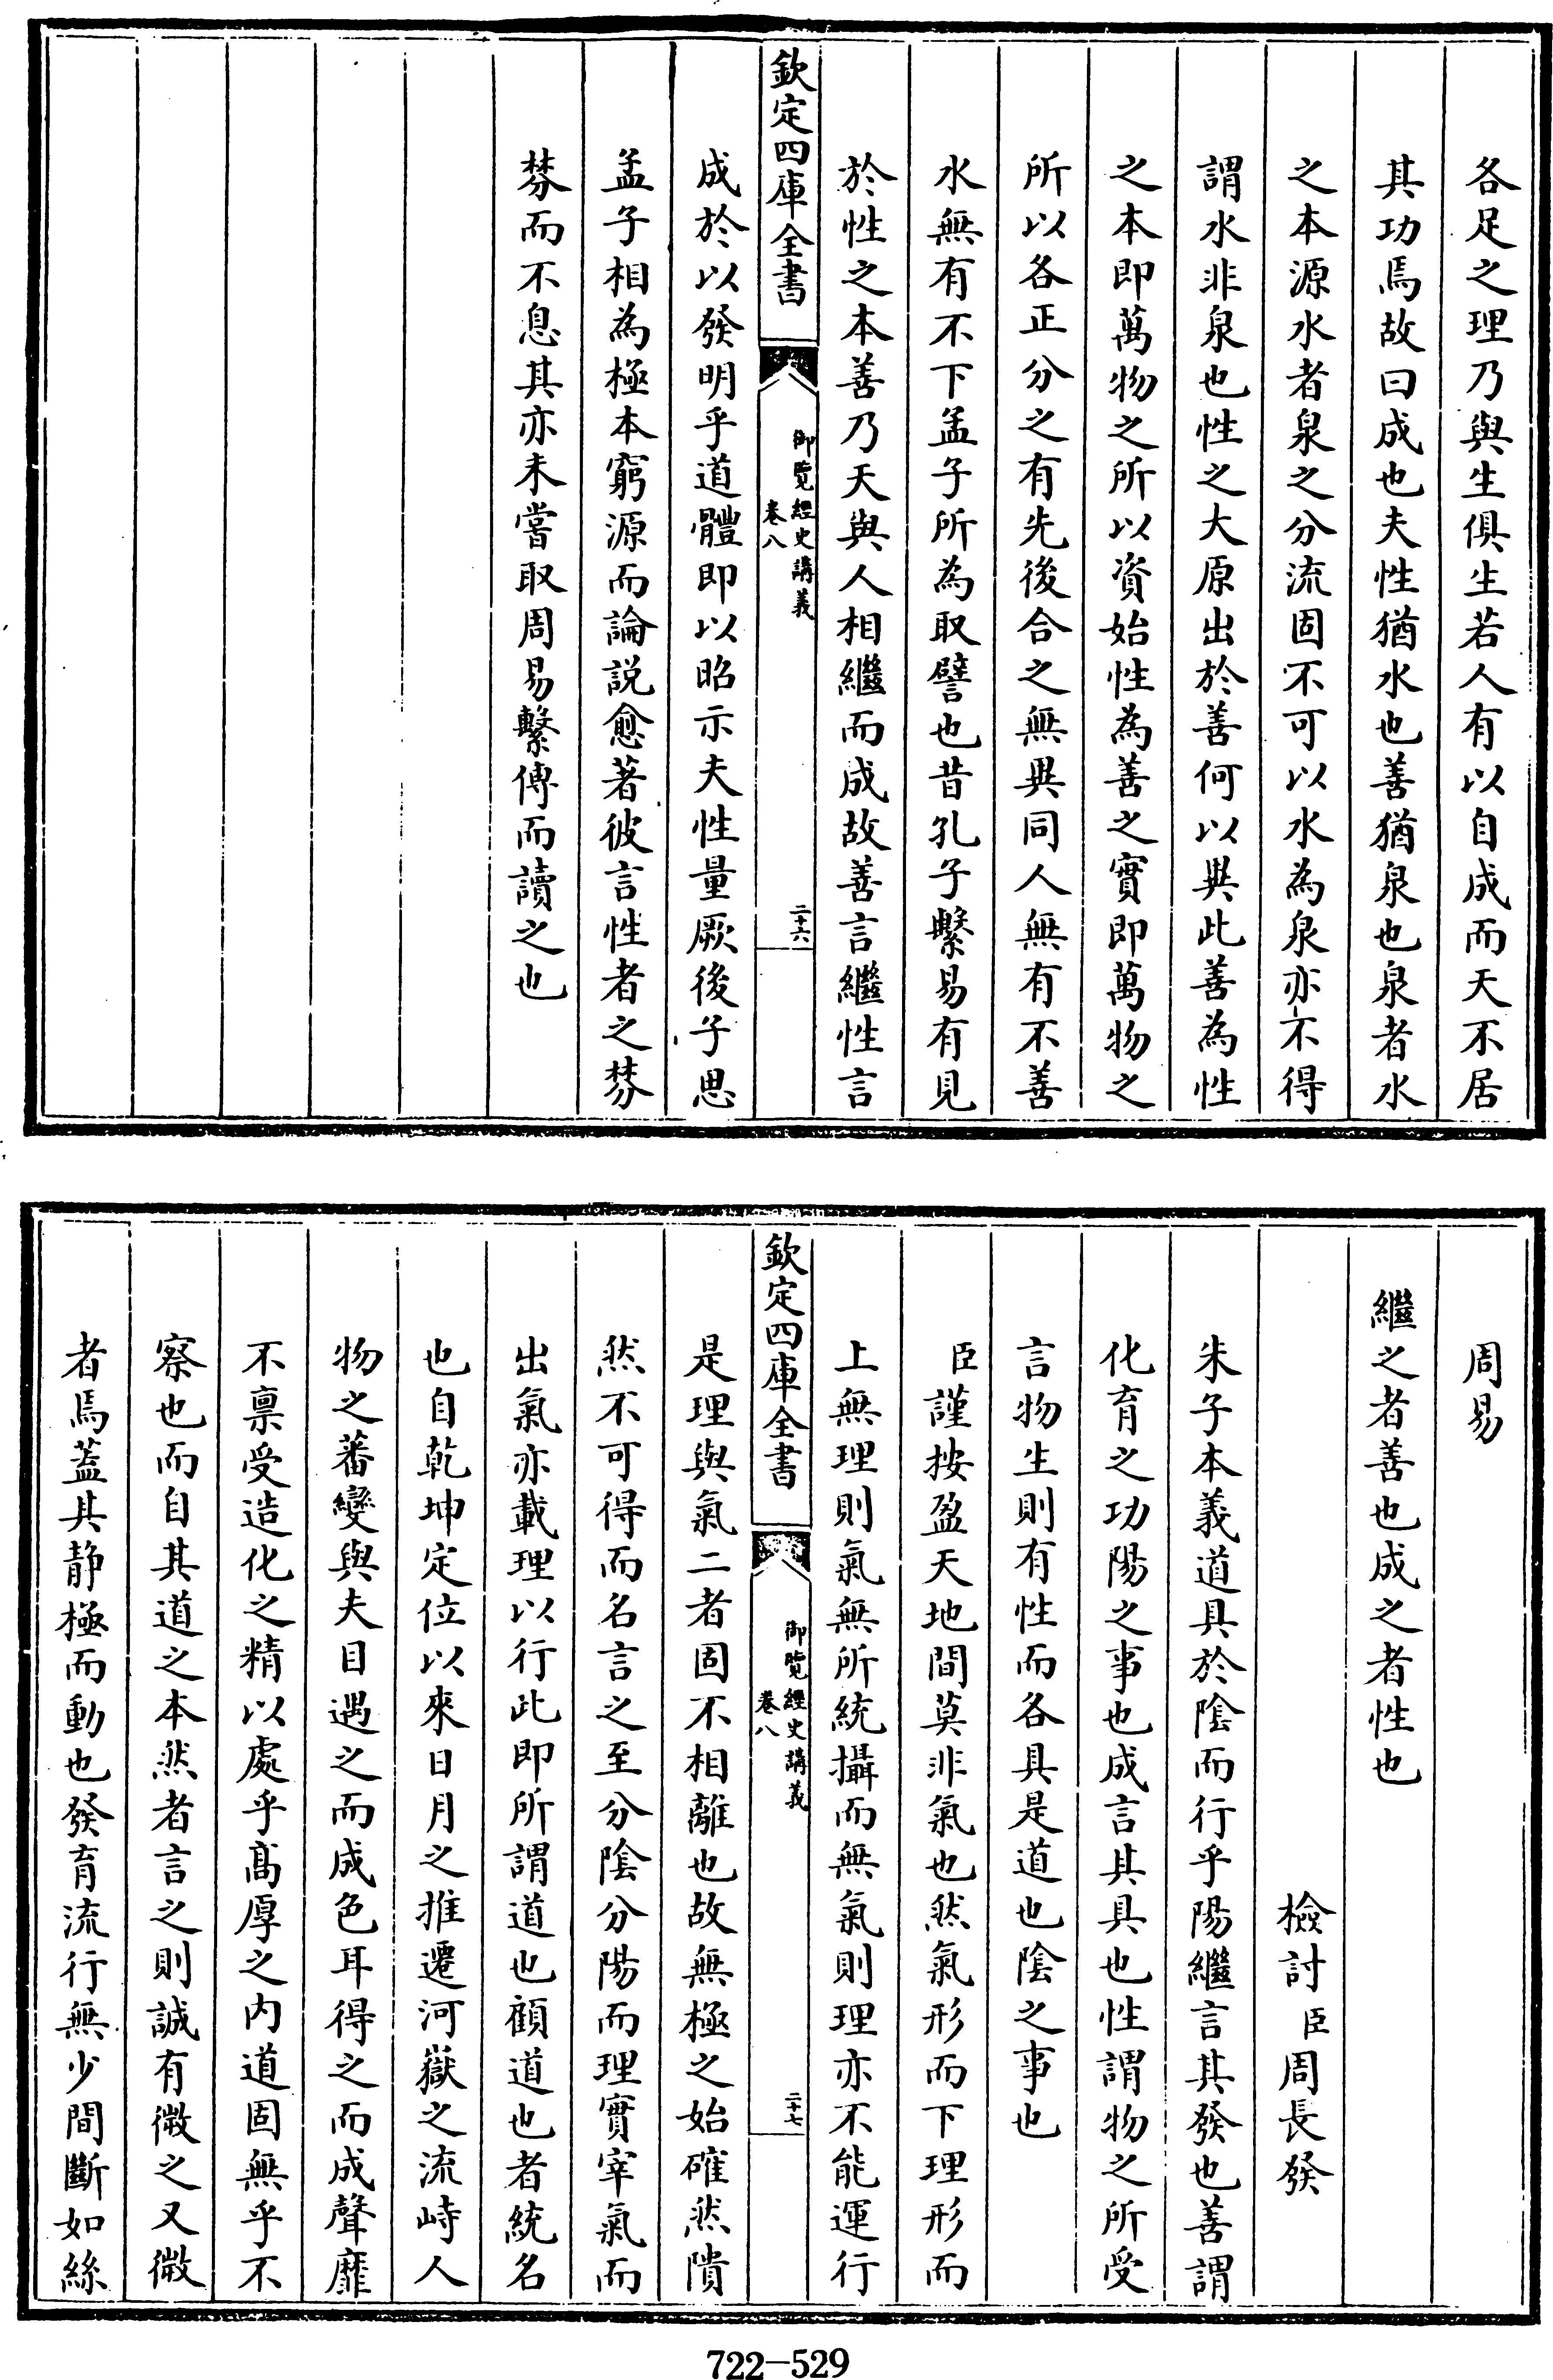 各足之理乃與生俱生若人有以自成而天不居
其功焉故曰成也夫性猶水也善猶泉也泉者水
之本源水者泉之分流固不可以水為泉亦不得
謂水非泉也性之大原出於善何以異此善為性
之本即萬物之所以資始性為善之實即萬物之
所以各正分之有先後合之無異同人無有不善
水無有不下孟子所為取譬也昔孔子繫易有見
於性之本善乃天與人相繼而成故善言繼性言
欽定四庫全書
御覽經史講義
卷八
二十六
成於以發明乎道體即以昭示夫性量厥後子思
孟子相為極本窮源而論説愈著彼言性者之棼
棼而不息其亦未嘗取周易繫傳而讀之也
周易
繼之者善也成之者性也
檢討臣周長發
朱子本義道具於陰而行乎陽繼言其發也善謂
化育之功陽之事也成言其具也性謂物之所受
言物生則有性而各具是道也陰之事也
臣謹按盈天地間莫非氣也然氣形而下理形而
上無理則氣無所統攝而無氣則理亦不能運行
欽定四庫全書
御覽經史講義
卷八
二十七
是理與氣二者固不相離也故無極之始確然隤
然不可得而名言之至分陰分陽而理實宰氣而
出氣亦載理以行此即所謂道也顧道也者統名
也自乾坤定位以來日月之推遷河嶽之流峙人
物之蕃變與夫目遇之而成色耳得之而成聲靡
不禀受造化之精以處乎髙厚之内道固無乎不
察也而自其道之本然者言之則誠有微之又微
者焉葢其静極而動也發育流行無少間斷如絲
722-529